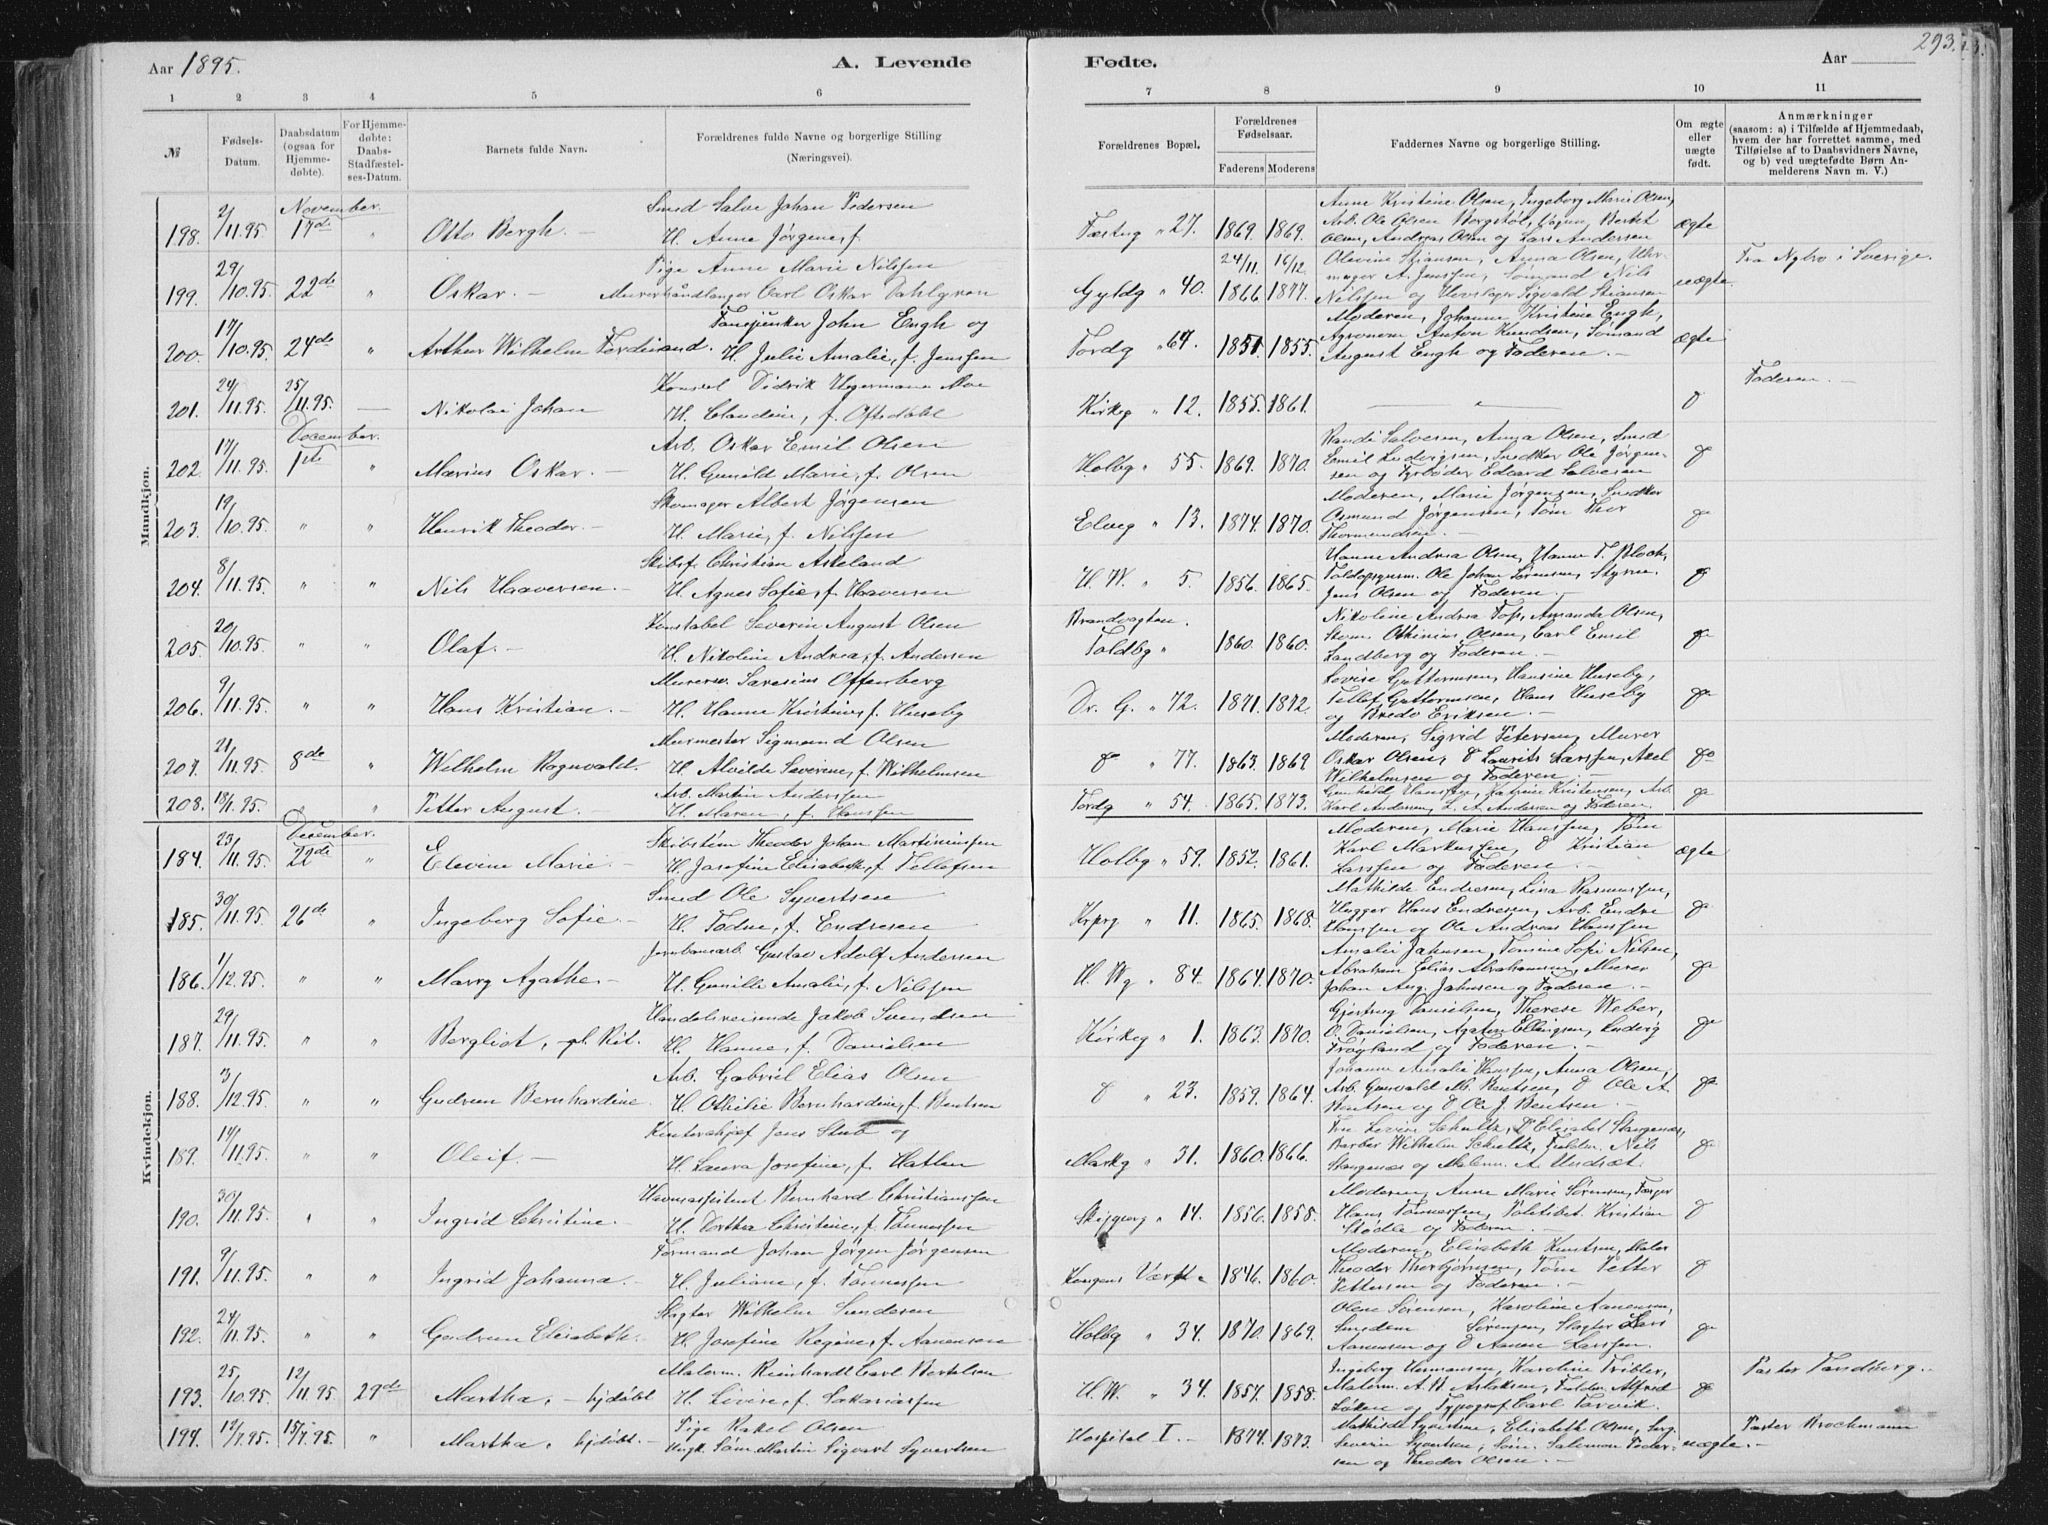 293.
Aar 1895.
A. Levende
Fødte.
Aar
1 2 3 4 5 6
7 8 9 10 11
№
Fødsels-Datum.
Daabsdatum (ogsaa for Hjemmedøbte).
For Hjemmedøbte: Daabs-Stadfæstelses-Datum.
Barnets fulde Navn.
Forældrenes fulde Navne og borgerlige Stilling (Næringsvei).
Forældrenes Bopæl.
Forældrenes Fødselsaar.
Faderens Moderens
Faddernes Navne og borgerlige Stilling.
Om ægte eller uægte født.
Anmærkninger
(saasom: a) i Tilfælde af Hjemmedaab, hvem der har forrettet samme, med Tilføielse af to Daabsvidners Navne, og b) ved uægtefødte Børn Anmelderens Navn m. V.)
Mandkjøn.
November.
198. 2/11.95. 17de " Otto Bergh. — Smed Salve Johan Pedersen
H. Anne Jørgine, f.
Fæstng " 27. 1869. 1869. Anne Kristine Olsen, Ingeborg Marie Olsen,
Arb. Ole Olsen Bergstøl, Vognm. Berket
Olsen, Andreas Olsen og Lars Andersen ægte
199. 29/10.95. 22de " Oskar. — Pige Anne Marie Nilssen
Murerhåndlanger Carl Oskar Dahlgren
Gyldg " 40. 24/11. 1866 16/12. 1877. Olevine Stiansen, Anna Olsen, Uhrmager
A. Jenssen, Sømand Nils
Nilssen og Sigvald Stiansen uægte. Fra Nybro i Sverige.
200. 17/10.95. 24de " Arthur Wilhelm Ferdinand. Fanejunker John Engh og
H. Julie Amalie, f. Jenssen
Tordg " 64. 1851. 1855. Moderen, Johanne Kristine Engh,
Agronom Anton Knudsen, Sømand
August Engh og Faderen. — ægte
201. 24/11.95. 25/11.95. — Nikolai Johan Konsul Didrik Hegermann Moe
H. Claudine, f. Oftedahl
Kirkeg " 12. 1855. 1861. — " — D Faderen. —
December.
202. 17/11.95. 1ste " Marius Oskar. — Arb. Oskar Emil Olsen
H. Gunild Marie, f. Olsen
Holbg " 55. 1869. 1870. Randi Salvesen, Anna Olsen, Smed
Emil Ludvigsen, Snedker Ole Jørgensen
og Fyrbøder Edvard Salvesen do
203. 19/10.95 " " Henrik Theodor. — Skomager Albert Jørgensen
H. Marie, f. Nilssen
Elveg " 13. 1874. 1870. Moderen, Marie Jørgensen, Snedker
Osmund Jørgensen, Tøm. Thor
Thormundsen. — do
204. 8/11.95. " " Nils Haaversen. — Skibsf. Christian Askeland
H. Agnes Sofie, f. Haaversen
H. W. " 5. 1856. 1865. Hanne Andrea Olsen, Hanne T. Block,
Toldopsynsm. Ole Johan Sørensen, Styrm.
Jens Olsen og Faderen. — do
205. 20/10.95. " " Olaf. — Konstabel Severin August Olsen
H. Nikoline Andrea, f. Andersen
Brandvagten.
Toldbg " 1860. 1860. Nikoline Andrea Foss, Amanda Olsen,
Skom. Othinius Olsen, Carl Emil
Landberg og Faderen. — do
206. 9/11.95. " " Hans Kristian. — Offenberg
H. Hanne Kristine, f. Huseby
Dr. G. " 72. 1871. 1872. Lovise Guttormsen, Hansine Huseby,
Tellef Guttormsen, Hans Huseby
og Bredo Eriksen. — do
207. 21/11.95. 8de " Wilhelm Ragnvald. Murmester Sigmund Olsen
H. Alvilde Severine, f. Wilhelmsen
do " 77. 1863. 1869 Moderen, Sigrid Petersen, Murer
Oskar Olsen, D Laurits Larssen, Axel
Wilhelmsen og Faderen. — do
208. 18/1.95. " Petter August. Arb. Martin Anderssen
H. Maren, f. Hanssen
Tordg " 54. 1865. 1873. Gunhild Hanssen, Katrine Kristensen, Arb.
Karl Andersen, L. A. Andersen og Faderen. do
Kvindekjøn.
December.
184. 23/11.95. 22de " Elevine Marie. — Skibstim. Theodor Johan Martiniussen
H. Josefine Elisabeth, f. Tellefsen
Holbg " 59. 1852. 1861. Moderen, Marie Hanssen, Tøm
Karl Markussen, D Kristian
Larssen og Faderen. — ægte
185. 30/11.95. 26de " Ingeborg Sofie. — Smed Ole Syvertsen
H. Todne, f. Endresen
Kprg " 11. 1865. 1868. Mathilde Endresen, Lina Rasmussen,
Hugger Hans Endresen, Arb. Endre
Hanssen og Ole Andreas Hanssen do
186. 1/12.95. " " Marry Agathe. — Jernbanearb. Gustav Adolf Andersen
H. Gunille Amalie, f. Nilssen
H. Wg " 84. 1864. 1870. Amalie Jahnsen, Tomine Sofie Nilsen,
Abraham Elias Abrahamsen, Murer
Johan Aug. Jahnsen og Faderen. — do
187. 29/11.95. " " Bergliot, — Handelsreisende Jakob Svendsen
H. Hanne, f. Danielsen
Kirkeg " 1. 1863. 1870. Gjertrug Danielsen, Therese Weber,
O. Danielsen, Agaton Ellingsen, Ludvig
Frøyland og Faderen. — do
188. 3/12.95. " " Gudrun Bernhardine. Arb. Gabriel Elias Olsen
H. Othilie Bernhardine, f. Bentsen
D " 23. 1859. 1864. Johanne Amalie Hanssen, Anna Olsen,
Arb. Gunvald M. Bentsen, D Ole A.
Bentsen og D Ole J. Bentsen. — do
189. 14/11.95. " " Oleif — Kontorchef Jens Stub og
H. Laura Josefine, f. Hatlen
Markg " 31. 1860. 1866. Fru Levine Schultz, Do Elisabet Stangenæs,
Barber Wilhelm Schultz, Fuldm. Nils
Stangenæs og Malerm. A. Undsæt. do
190. 30/11.95. " " Ingrid Christine. — Havneassistent Bernhard Christianssen
H. Dorthea Christine, f. Tønnessen
Skippерg " 14. 1856. 1858. Moderen, Anne Marie Sørensen, Farger
Hans Tønnessen, Politibet. Kristian
Stødle og Faderen. — D
191. 9/11.95. " " Ingrid Johanna. — Formand Johan Jørgen Jørgensen
H. Juliane, f. Tønnessen
Kongens Værft. 1846. 1860. Moderen, Elisabeth Knutsen, Maler
Theodor Thorbjørnsen, Tøm Petter
Pettersen og Faderen. — do
192. 24/11.95. " " Gudrun Elisabeth. Slagter Wilhelm Gundersen
H. Josefine Regine, f. Aanensen
Holbg " 34. 1870. 1869. Olene Sørensen, Karoline Aanensen,
Sørensen, Slagter Lars
Aanensen og D Aanen Larssen. do
193. 25/10.95 12/11.95 27de Martha. — hjdøbt Malerm. Reinhardt Carl Bertelsen
H. Lovise, f. Sakariassen
H. W. " 34. 1857. 1858. Ingeborg Hermansen, Karoline Tribler,
Malerm. A. B. Aslaksen, Fuldm. Alfred
Løken og Typograf Carl Torvik. do Pastor Tandberg. —
194. 12/7.95. 15/7.95. " Martha. hjdøbt. — Pige Rakel Olsen
Ungk. Søm. Martin Sigvart Syvertsen
Hospital I. — 1874. 1873. Mathilde Syvertsen, Elisabeth Olsen,
Severin Syvertsen, Søm. Salomon Pedersen
og Theodor Olsen. — uægte. — Pastor Brochmann